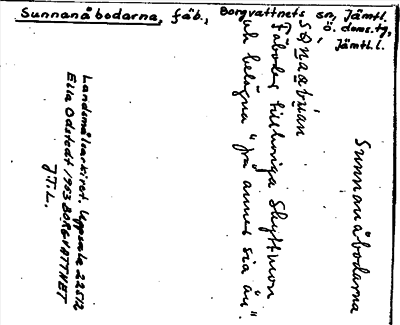 Sunnanåbodarna, fäb., Borgvattnets sn, Jämtl.
ö. doms.tg,
Jämtl.l.
Sunnanåbodarna
Fäbodar tillhöriga Skyttmon
och belägna "på annes sia ån".
Landsmålsarkivet. Uppsala 22512
Ella Odstedt 1953 BORGVATTNET
J.T.L.